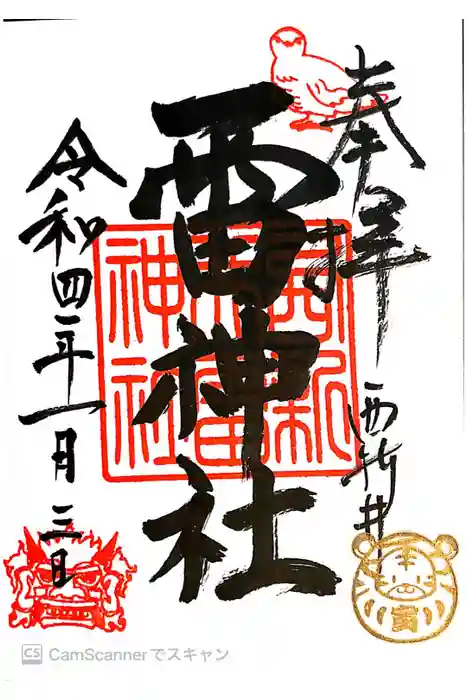 奉拝
西新井
雷神社
西新
井雷
神社
令和四年一月三日
寅
CS CamScannerでスキャン